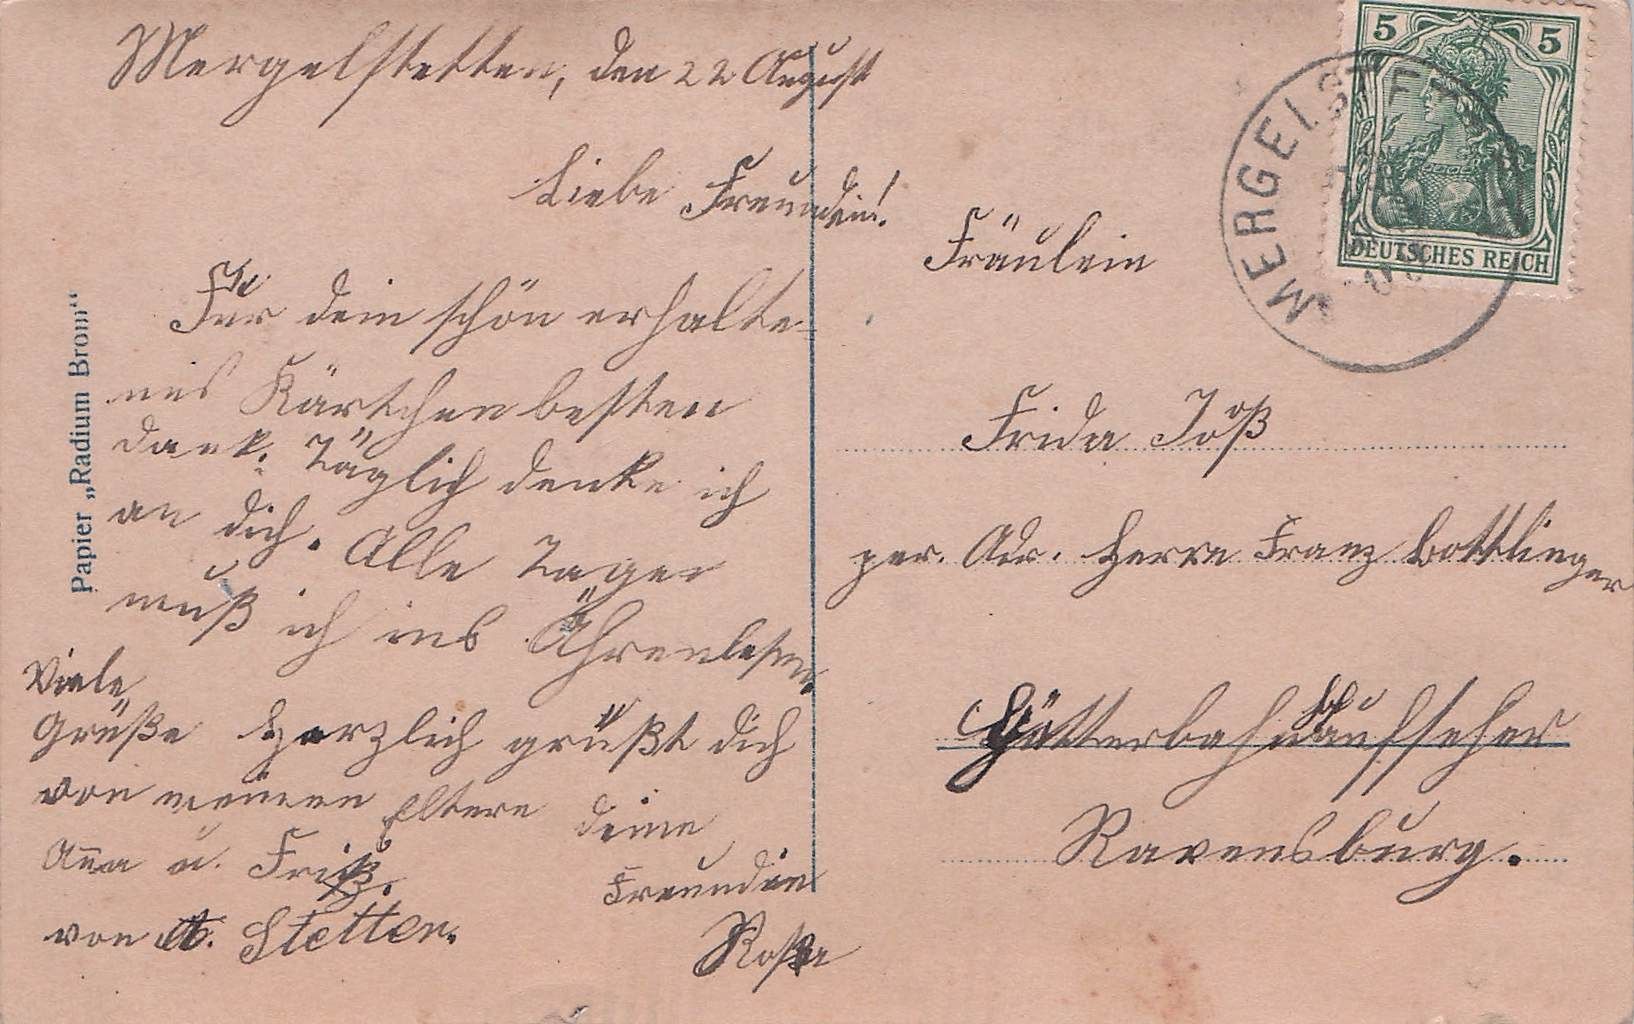 Mergelstetten, den 22 August
Liebe Freundin!
Für dein schön erhalte-
nes Kärtchen besten
dank. Täglich denke ich
an dich. Alle Tage
muß ich ins Ährenlesen.
Viele
Grüße
von meinen Eltern
Anna u. Fritz.
von St. Stetten.
Herzlich grüßt dich
deine
Freundin
Rosa
Papier „Radium Brom“
5 5
DEUTSCHES REICH
MERGELST
Fräulein
Frida Joß
per. Adr. Herrn Franz Bottlinger
Güterbahnhofaufseher
Ravensburg.